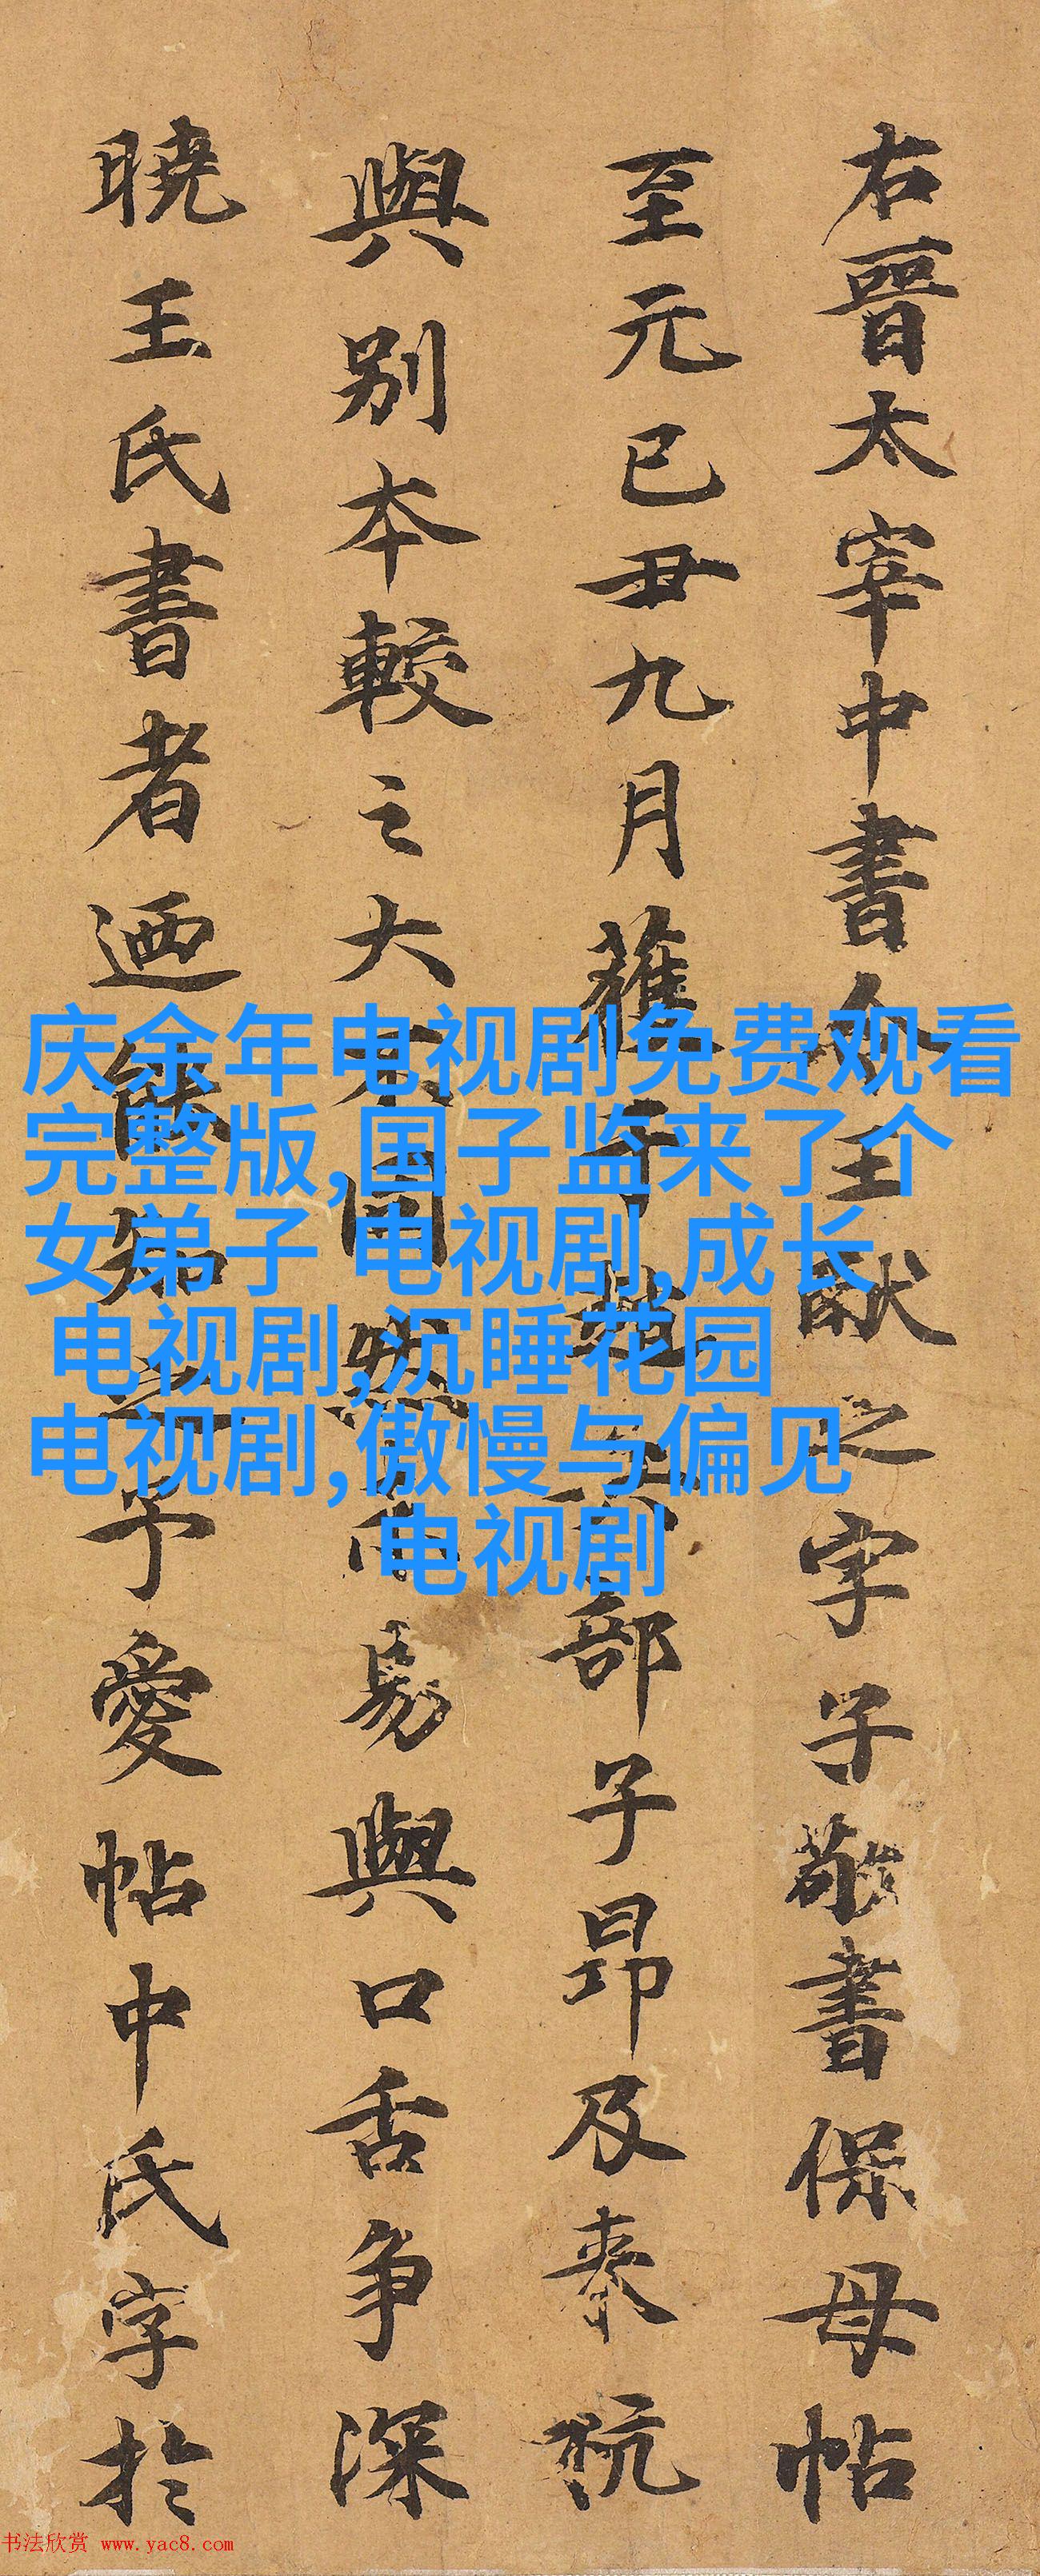 右晉太宰中書令王獻之字子敬書保母帖
至元己丑九月獲于趙 部子昂及泰 
與别本較之大不同 易與口舌争深
曉王氏書者迺能知之予愛帖中氏字於
庆余年电视剧免费观看
完整版,国子监来了个
女弟子 电视剧,成长
电视剧,沉睡花园
电视剧,傲慢与偏见
电视剧
书法欣赏 www.yac8.com